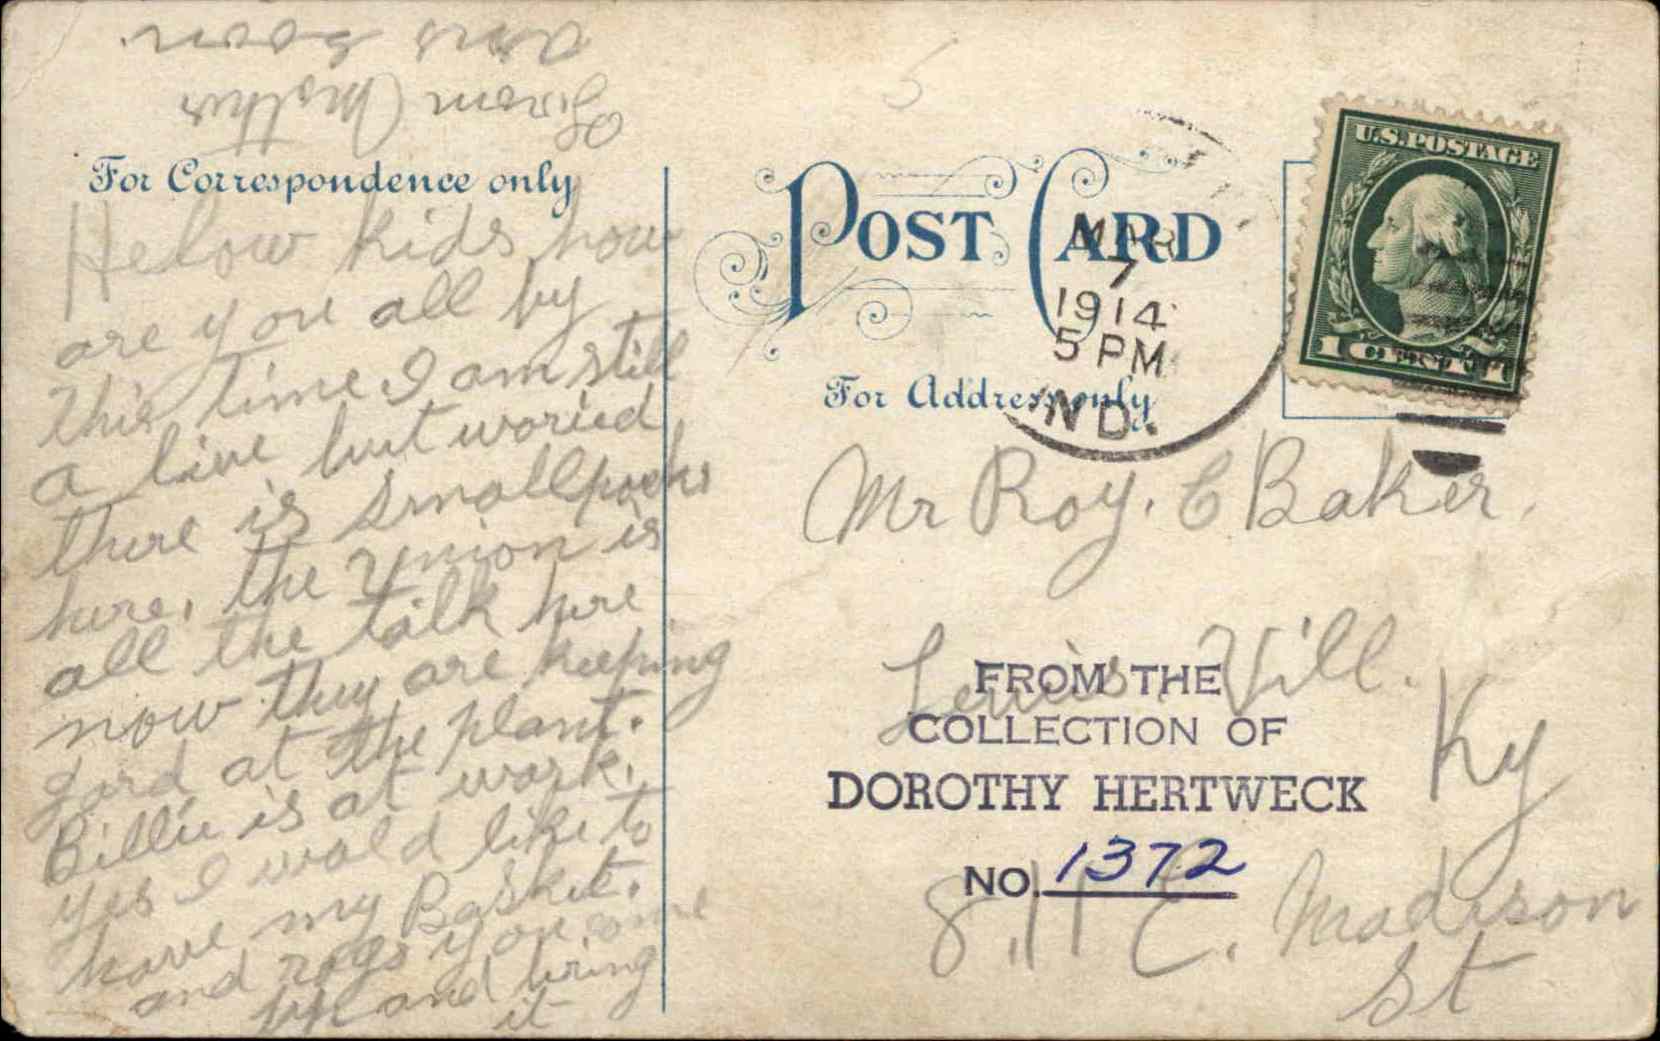 For Correspondence only
Helow kids how
are you all by
this time I am still
a live but woried
there is smallpocks
here. the Union is
all the talk here
now they are keeping
gard at the plant.
Billie is at work.
yes I wold like to
have my Baskit.
and rogs you come
up and bring
it
From Mother
ans soon
POST CARD
For Address only
U.S. POSTAGE
1 CENT 1
MAR
7
1914
5 PM
IND.
Mr Roy. C Baker.
Lewis Vill.
Ky
811 E. Madison
St
FROM THE
COLLECTION OF
DOROTHY HERTWECK
NO. 1372
5